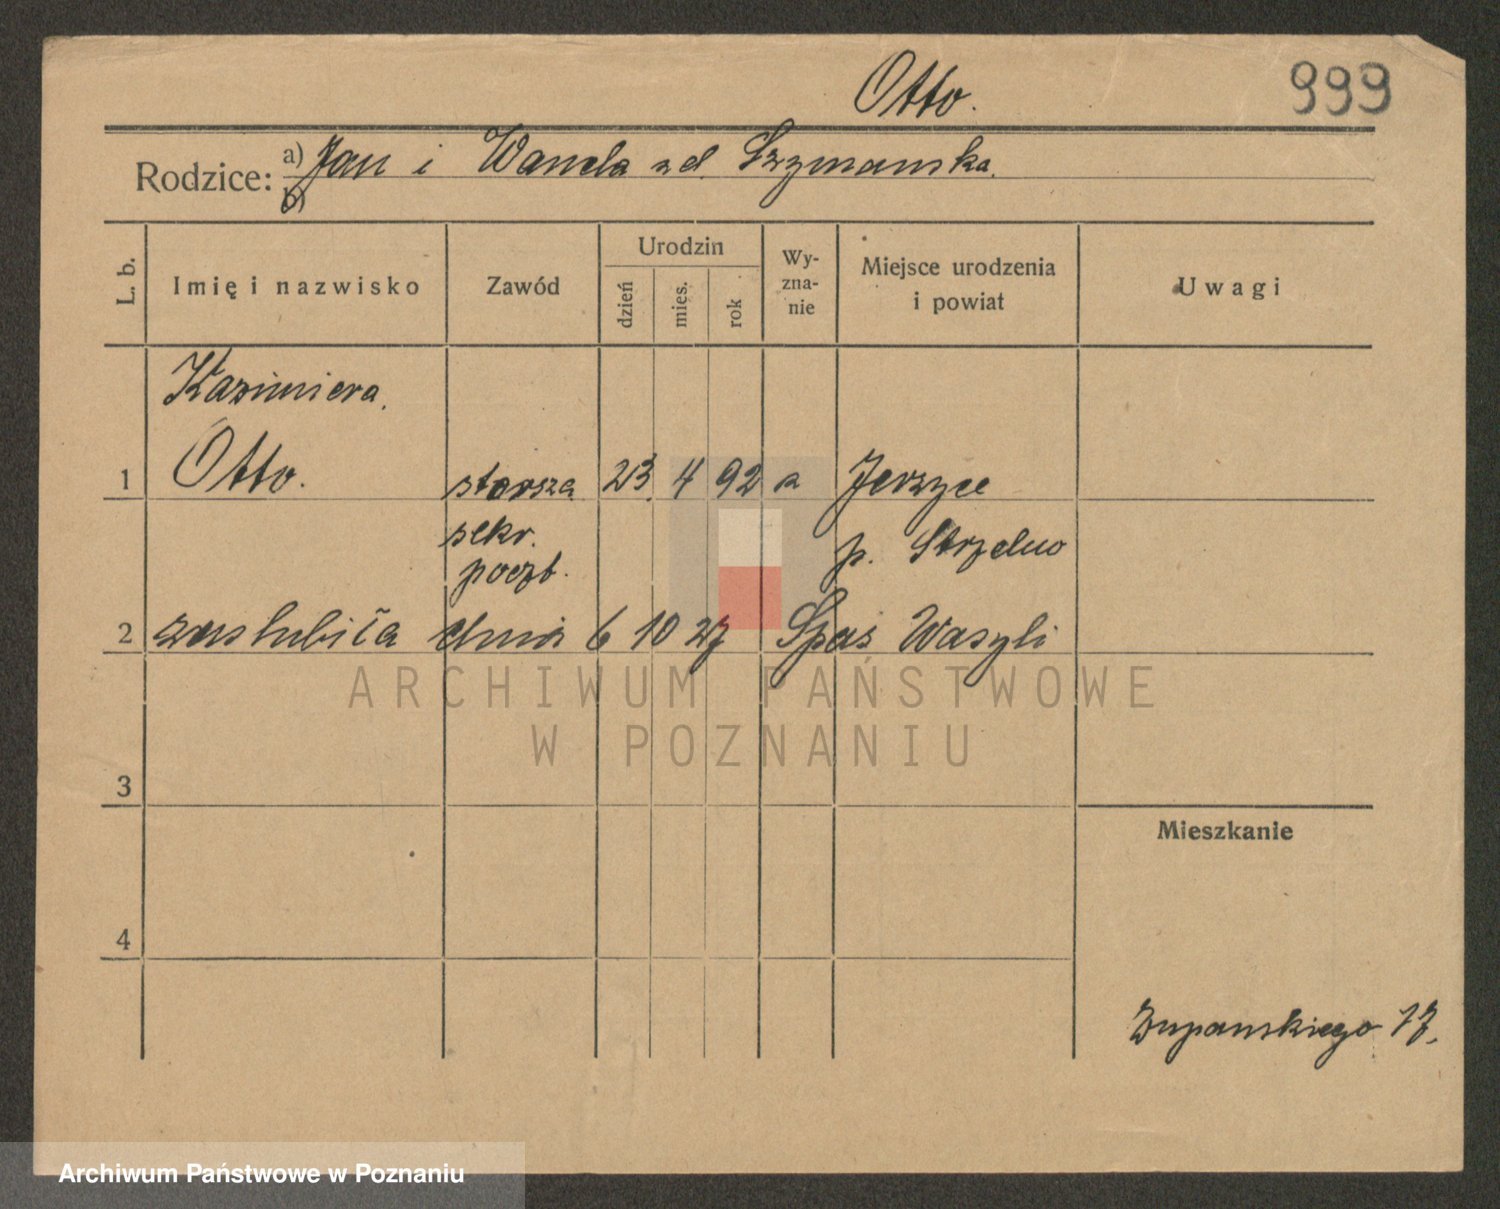 Otto. 999
Rodzice: a) Jan i Wanda zd. Szymanska.
b)
L. b. Imię i nazwisko Zawód Urodzin dzień mies. rok Wy-zna-nie Miejsce urodzenia i powiat Uwagi
Kazimiera.
1 Otto. starsza 23. 4 92 Jerzyce
sekr. p. Strzelno
poczt.
2 zaslubiła dnia 6 10 27 Spas Wasyli
ARCHIWUM PAŃSTWOWE
W POZNANIU
3
Mieszkanie
4
Zupanskiego 17.
Archiwum Państwowe w Poznaniu